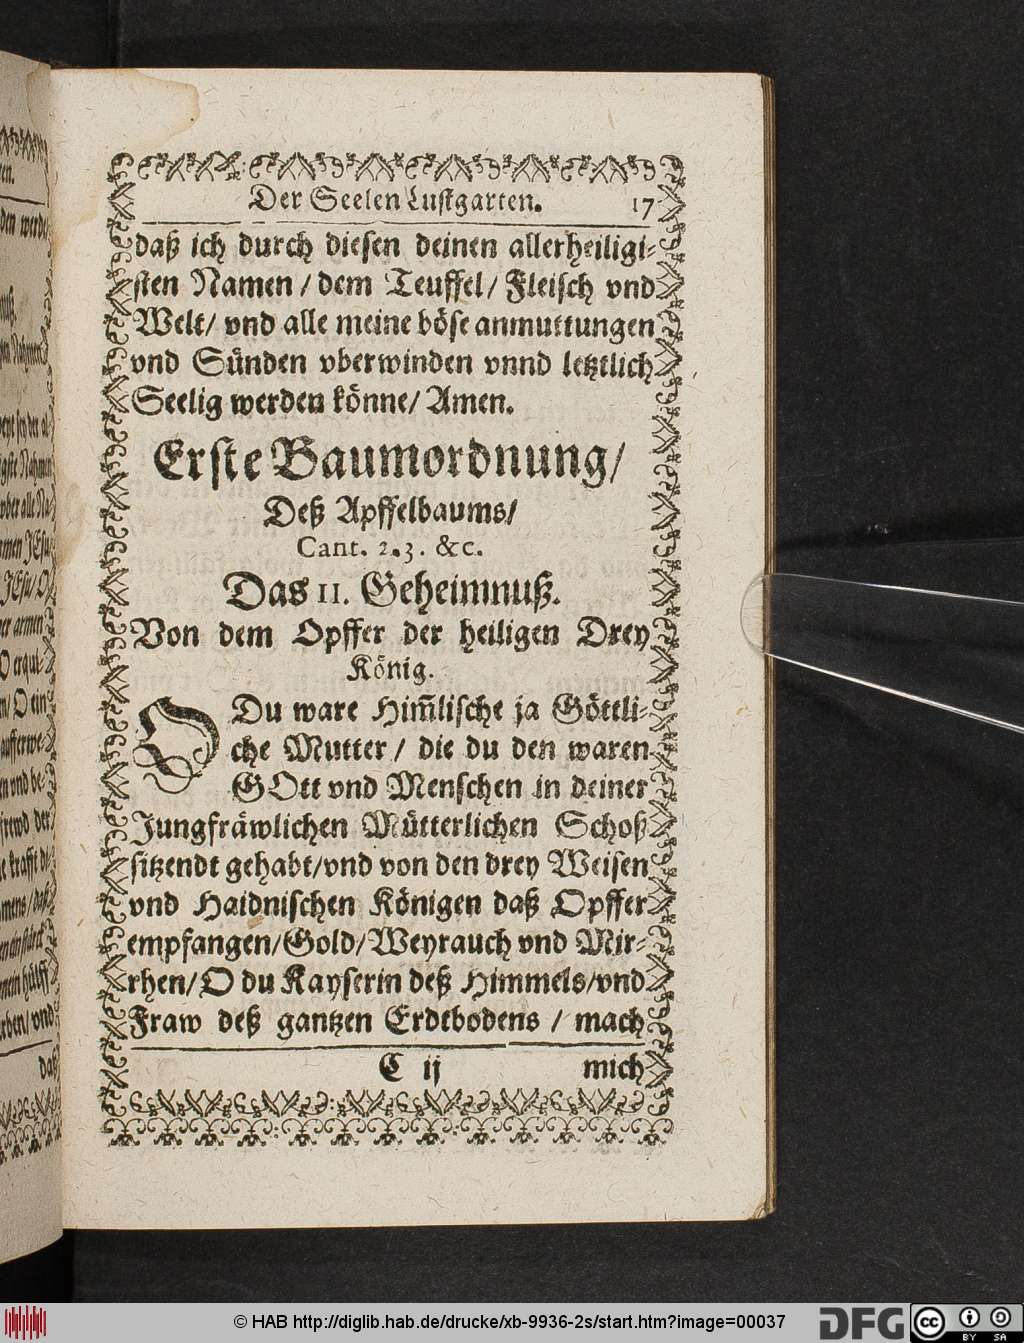 Der Seelen Lustgarten. 17
daß ich durch diesen deinen allerheiligi-
sten Namen / dem Teuffel / Fleisch vnd
Welt / vnd alle meine böse anmuttungen
vnd Sünden vberwinden vnnd letztlich
Seelig werden könne / Amen.
Erste Baumordnung /
Deß Apffelbaums /
Cant. 2. 3. &c.
Das II. Geheimnuß.
Von dem Opffer der heiligen Drey
König.
O Du ware Him̃lische ja Göttli-
che Mutter / die du den waren
GOtt vnd Menschen in deiner
Jungfräwlichen Mütterlichen Schoß
sitzendt gehabt / vnd von den drey Weisen
vnd Haidnischen Königen daß Opffer
empfangen / Gold / Weyrauch vnd Mir-
rhen / O du Kayserin deß Himmels / vnd
Fraw deß gantzen Erdtbodens / mach
C ij mich
© HAB http://diglib.hab.de/drucke/xb-9936-2s/start.htm?image=00037
DFG
cc BY SA